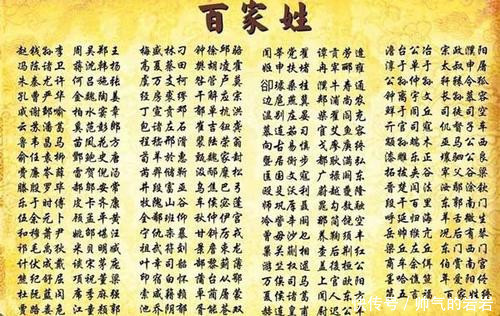 百家姓
赵钱孙李 周吴郑王 梅盛林刁 钟徐邱骆 闻莘党翟 谭贡劳逄 澹台公冶 宗政濮阳
冯陈褚卫 蒋沈韩杨 高夏蔡田 樊胡凌霍 姬申扶堵 冉宰郦雍 淳于单于 太叔申屠
朱秦尤许 何吕施张 虞万支柯 昝管卢莫 郤璩桑桂 濮牛寿通 公孙仲孙 轩辕令狐
孔曹严华 金魏陶姜 经房裘缪 干解应宗 边扈燕冀 郏浦尚农 钟离宇文 长孙慕容
戚谢邹喻 柏水窦章 丁宣贲邓 郁单杭洪 温别庄晏 柴瞿阎充 鲜于闾丘 司徒司空
云苏潘葛 奚范彭郎 包诸左石 崔吉钮龚 慕连茹习 宦艾鱼容 亓官司寇 仉督子车
鲁韦昌马 苗凤花方 程嵇邢滑 裴陆荣翁 向古易慎 戈廖庾终 颛孙端木 巫马公西
俞任袁柳 酆鲍史唐 荀羊於惠 甄曲家封 暨居衡步 都耿满弘 漆雕乐正 壤驷公良
费廉岑薛 雷贺倪汤 芮羿储靳 汲邴糜松 匡国文寇 广禄阙东 拓跋夹谷 宰父谷梁
滕殷罗毕 郝邬安常 井段富巫 乌焦巴弓 欧殳沃利 蔚越夔隆 晋楚闫法 汝鄢涂钦
乐于时傅 皮卞齐康 牧隗山谷 车侯宓蓬 师巩厍聂 晁勾敖融 段干百里 东郭南门
伍余元卜 顾孟平黄 全郗班仰 秋仲伊宫 冷訾辛阚 那简饶空 呼延归海 羊舌微生
和穆萧尹 姚邵湛汪 宁仇栾暴 甘钭厉戎 曾毋沙乜 养鞠须丰 岳帅缑亢 况郈有琴
祁毛禹狄 米贝明臧 祖武符刘 景詹束龙 巢关蒯相 查后荆红 梁丘左丘 东门西门
计伏成戴 谈宋茅庞 叶幸司韶 郜黎蓟薄 游竺权逯 盖益桓公 商牟佘佴 伯赏南宫
熊纪舒屈 项祝董梁 印宿白怀 蒲邰从鄂 万俟司马 上官欧阳 墨哈谯笪 年爱阳佟
杜阮蓝闵 席季麻强 索咸籍赖 卓蔺屠蒙 夏侯诸葛 闻人东方 第五言福 百家姓终